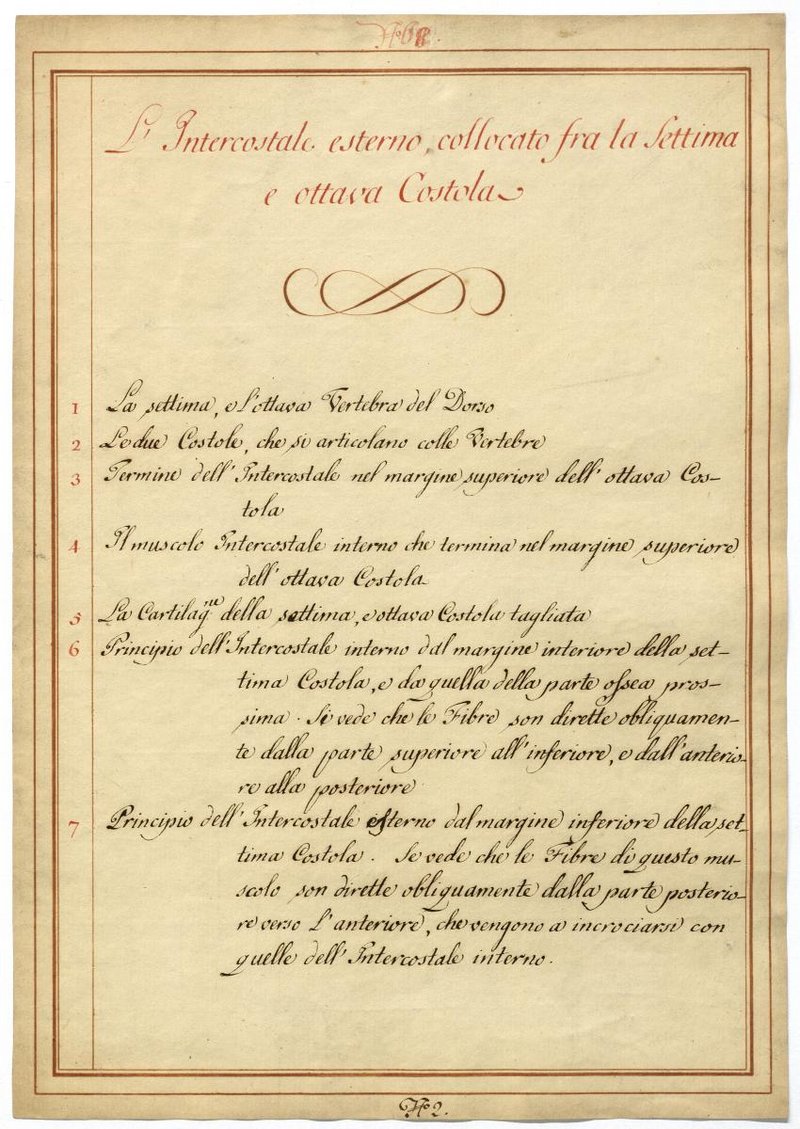 L' Intercostale esterno, collocato fra la Settima
e ottava Costola
1 La settima, e l'ottava Vertebra del Dorso
2 Le due Costole, che si articolano colle Vertebre
3 Termine dell' Intercostale nel margine superiore dell' ottava Cos-
tola
4 Il muscolo Intercostale interno che termina nel margine superiore
dell' ottava Costola
5 La Cartilag.ne della settima, e ottava Costola tagliata
6 Principio dell' Intercostale interno dal margine interiore della set-
tima Costola, e da quella della parte ossea pros-
sima. Si vede che le Fibre son dirette obliquamen-
te dalla parte superiore all' inferiore, e dall'anterio-
re alla posteriore
7 Principio dell' Intercostale esterno dal margine inferiore della set-
tima Costola. Se vede che le Fibre di questo mu-
scolo son dirette obliquamente dalla parte posterio-
re verso l' anteriore, che vengono a incrociarsi con
quelle dell' Intercostale interno.
No 2.